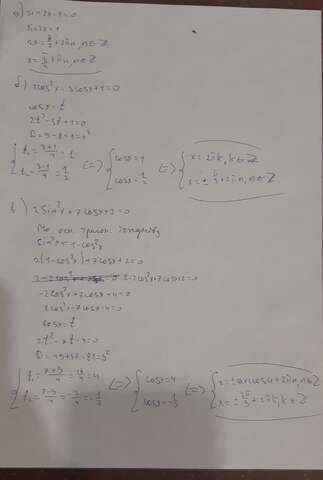 а) sin2x-1=0
sin2x=1
2x=π/2+2πn, n∈Z
x=π/4+πn, n∈Z
б) 2cos²x-3cosx+1=0
cosx=t
2t²-3t+1=0
D=9-8=1=1²
t₁=3+1/4=1
t₂=3-1/4=1/2
<=> cosx=1
cosx=1/2
<=> x=2πk, k∈Z
x=±π/3+2πn, n∈Z
в) 2sin²x+7cosx+2=0
По осн. триг. тождеству
sin²x=1-cos²x
2(1-cos²x)+7cosx+2=0
2-2cos²x+7cosx+2=0
-2cos²x+7cosx+4=0
2cos²x-7cosx-4=0
cosx=t
2t²-7t-4=0
D=49+32=81=9²
t₁=7+9/4=16/4=4
t₂=7-9/4=-2/4=-1/2
<=> cosx=4
cosx=-1/2
<=> x=±arccos4+2πn, n∈Z
x=±2π/3+2πk, k∈Z